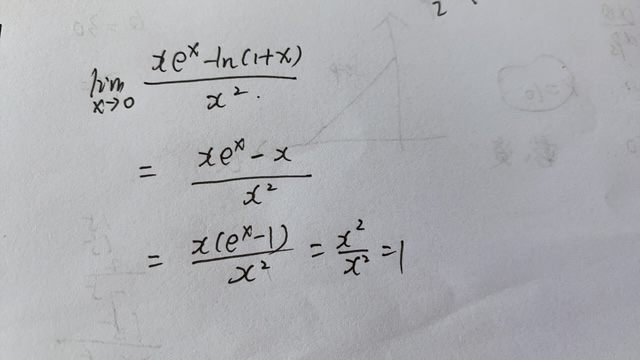 lim x→0 (xe^x - ln(1+x)) / x^2.
= (xe^x - x) / x^2
= x(e^x - 1) / x^2 = x^2 / x^2 = 1